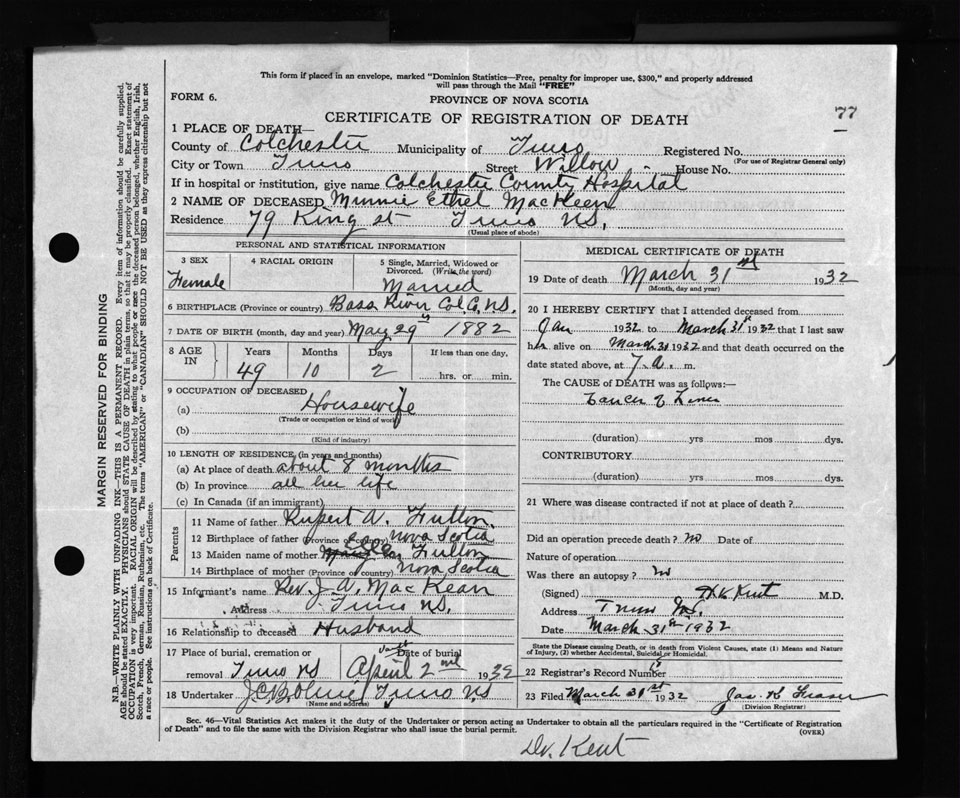 This form if placed in an envelope, marked "Dominion Statistics—Free, penalty for improper use, $300," and properly addressed
will pass through the Mail "FREE"
FORM 6.
PROVINCE OF NOVA SCOTIA
77
CERTIFICATE OF REGISTRATION OF DEATH
1 PLACE OF DEATH—
County of Colchester Municipality of Truro Registered No.
(For use of Registrar General only)
City or Town Truro Street Willow House No.
If in hospital or institution, give name Colchester County Hospital
2 NAME OF DECEASED Minnie Ethel MacKean
Residence 79 King St Truro N.S.
(Usual place of abode)
PERSONAL AND STATISTICAL INFORMATION
3 SEX
Female
4 RACIAL ORIGIN
5 Single, Married, Widowed or
Divorced. (Write the word)
Married
6 BIRTHPLACE (Province or country) Bass River Col. Co. N.S.
7 DATE OF BIRTH (month, day and year) May 29 1882
8 AGE IN
Years Months Days If less than one day,
49 10 2 hrs. or min.
9 OCCUPATION OF DECEASED
(a) Housewife
(Trade or occupation or kind of work)
(b)
(Kind of industry)
10 LENGTH OF RESIDENCE (in years and months)
(a) At place of death about 8 months
(b) In province all her life
(c) In Canada (if an immigrant)
Parents
11 Name of father Rupert A. Fulton
12 Birthplace of father (Province or country) Nova Scotia
13 Maiden name of mother Fulton
14 Birthplace of mother (Province or country) Nova Scotia
15 Informant's name Rev. J. A. MacKean
Address Truro N.S.
16 Relationship to deceased Husband
17 Place of burial, cremation or Date of burial
removal Truro NS April 2nd 1932
18 Undertaker Truro NS
(Name and address)
MEDICAL CERTIFICATE OF DEATH
19 Date of death March 31st 1932
(Month, day and year)
20 I HEREBY CERTIFY that I attended deceased from
Jan 1932 to March 31st 1932 that I last saw
her alive on March 31 1932 and that death occurred on the
date stated above, at 7. a. m.
The CAUSE of DEATH was as follows:—
Cancer of Liver
(duration) yrs mos dys.
CONTRIBUTORY
(duration) yrs mos dys.
21 Where was disease contracted if not at place of death?
Did an operation precede death? no Date of
Nature of operation
Was there an autopsy? no
(Signed) Kent M.D.
Address Truro N.S.
Date March 31st 1932
State the Disease causing Death, or in death from Violent Causes, state (1) Means and Nature
of Injury, (2) whether Accidental, Suicidal or Homicidal.
22 Registrar's Record Number
23 Filed March 31st 1932 Jas. K Fraser
(Division Registrar)
Sec. 46—Vital Statistics Act makes it the duty of the Undertaker or person acting as Undertaker to obtain all the particulars required in the "Certificate of Registration
of Death" and to file the same with the Division Registrar who shall issue the burial permit.
(OVER)
Dr. Kent
MARGIN RESERVED FOR BINDING
N.B.—WRITE PLAINLY WITH UNFADING INK—THIS IS A PERMANENT RECORD. Every item of information should be carefully supplied.
AGE should be stated EXACTLY. PHYSICIANS should STATE CAUSE OF DEATH in plain terms, so that it may be properly classified. Exact statement of
OCCUPATION is very important. RACIAL ORIGIN will be described by stating to what people or race the deceased person belonged, whether English, Irish,
Scotch, French, German, Russian, Ruthenian, etc. The terms "AMERICAN" or "CANADIAN" SHOULD NOT BE USED as they express citizenship but not
a race or people. See instructions on back of Certificate.